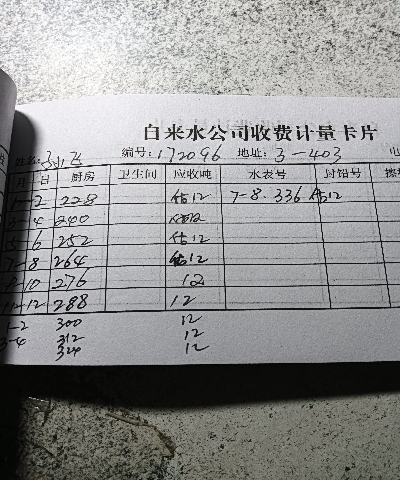 自来水公司收费计量卡片
姓名: 编号:172096 地址:3-403 电
月 日 厨房 卫生间 应收吨 水表号 封铅号
1-2 228 估12 7-8.336 估12
3-4 240 估12
5-6 252 估12
7-8 264 估12
9-10 276 12
11-12 288 12
1-2 300 12
3-4 312 12
324 12